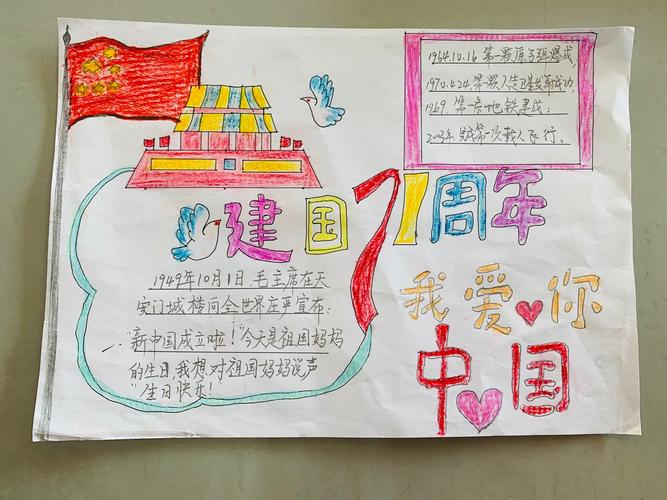 1964.10.16 第一颗原子弹爆成,
1970.4.24.第一颗人造卫星发射成功
1969.第一条地铁建成;
2003年 完成第一次载人飞行。
建国71周年
1949年10月1日,毛主席在天
安门城楼向全世界庄严宣布:
“新中国成立啦!”今天是祖国妈妈
的生日我想对祖国妈妈说声
“生日快乐!
我爱你
中国